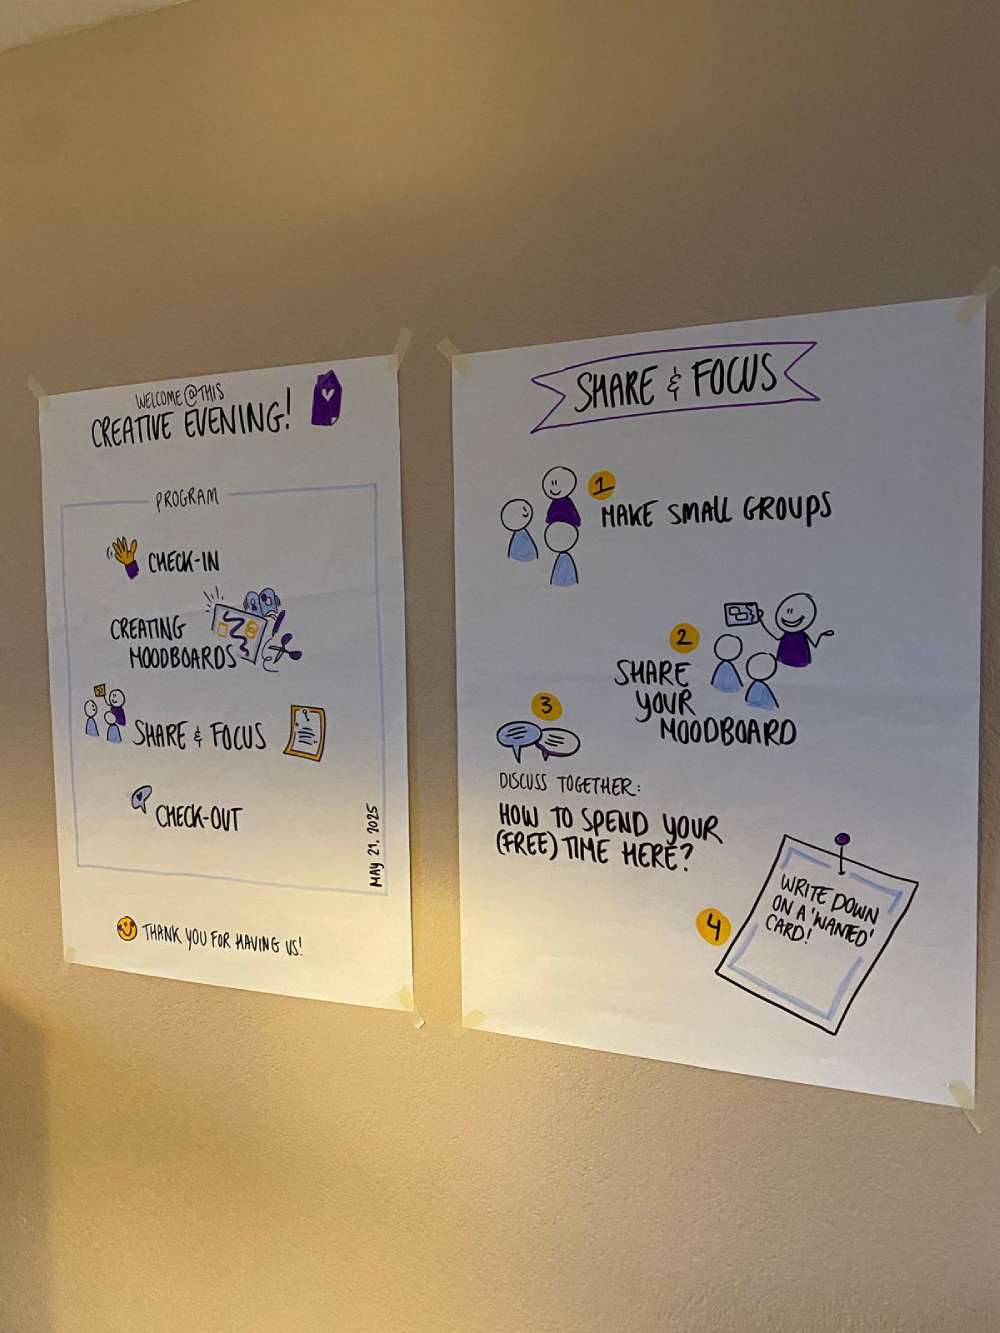 WELCOME @ THIS
CREATIVE EVENING!
PROGRAM
CHECK-IN
CREATING
MOODBOARDS
SHARE & FOCUS
CHECK-OUT
MAY 21. 2025
THANK YOU FOR HAVING US!
SHARE & FOCUS
1
MAKE SMALL GROUPS
2
SHARE
YOUR
MOODBOARD
3
DISCUSS TOGETHER:
HOW TO SPEND YOUR
(FREE) TIME HERE?
4
WRITE DOWN
ON A 'WANTED'
CARD!